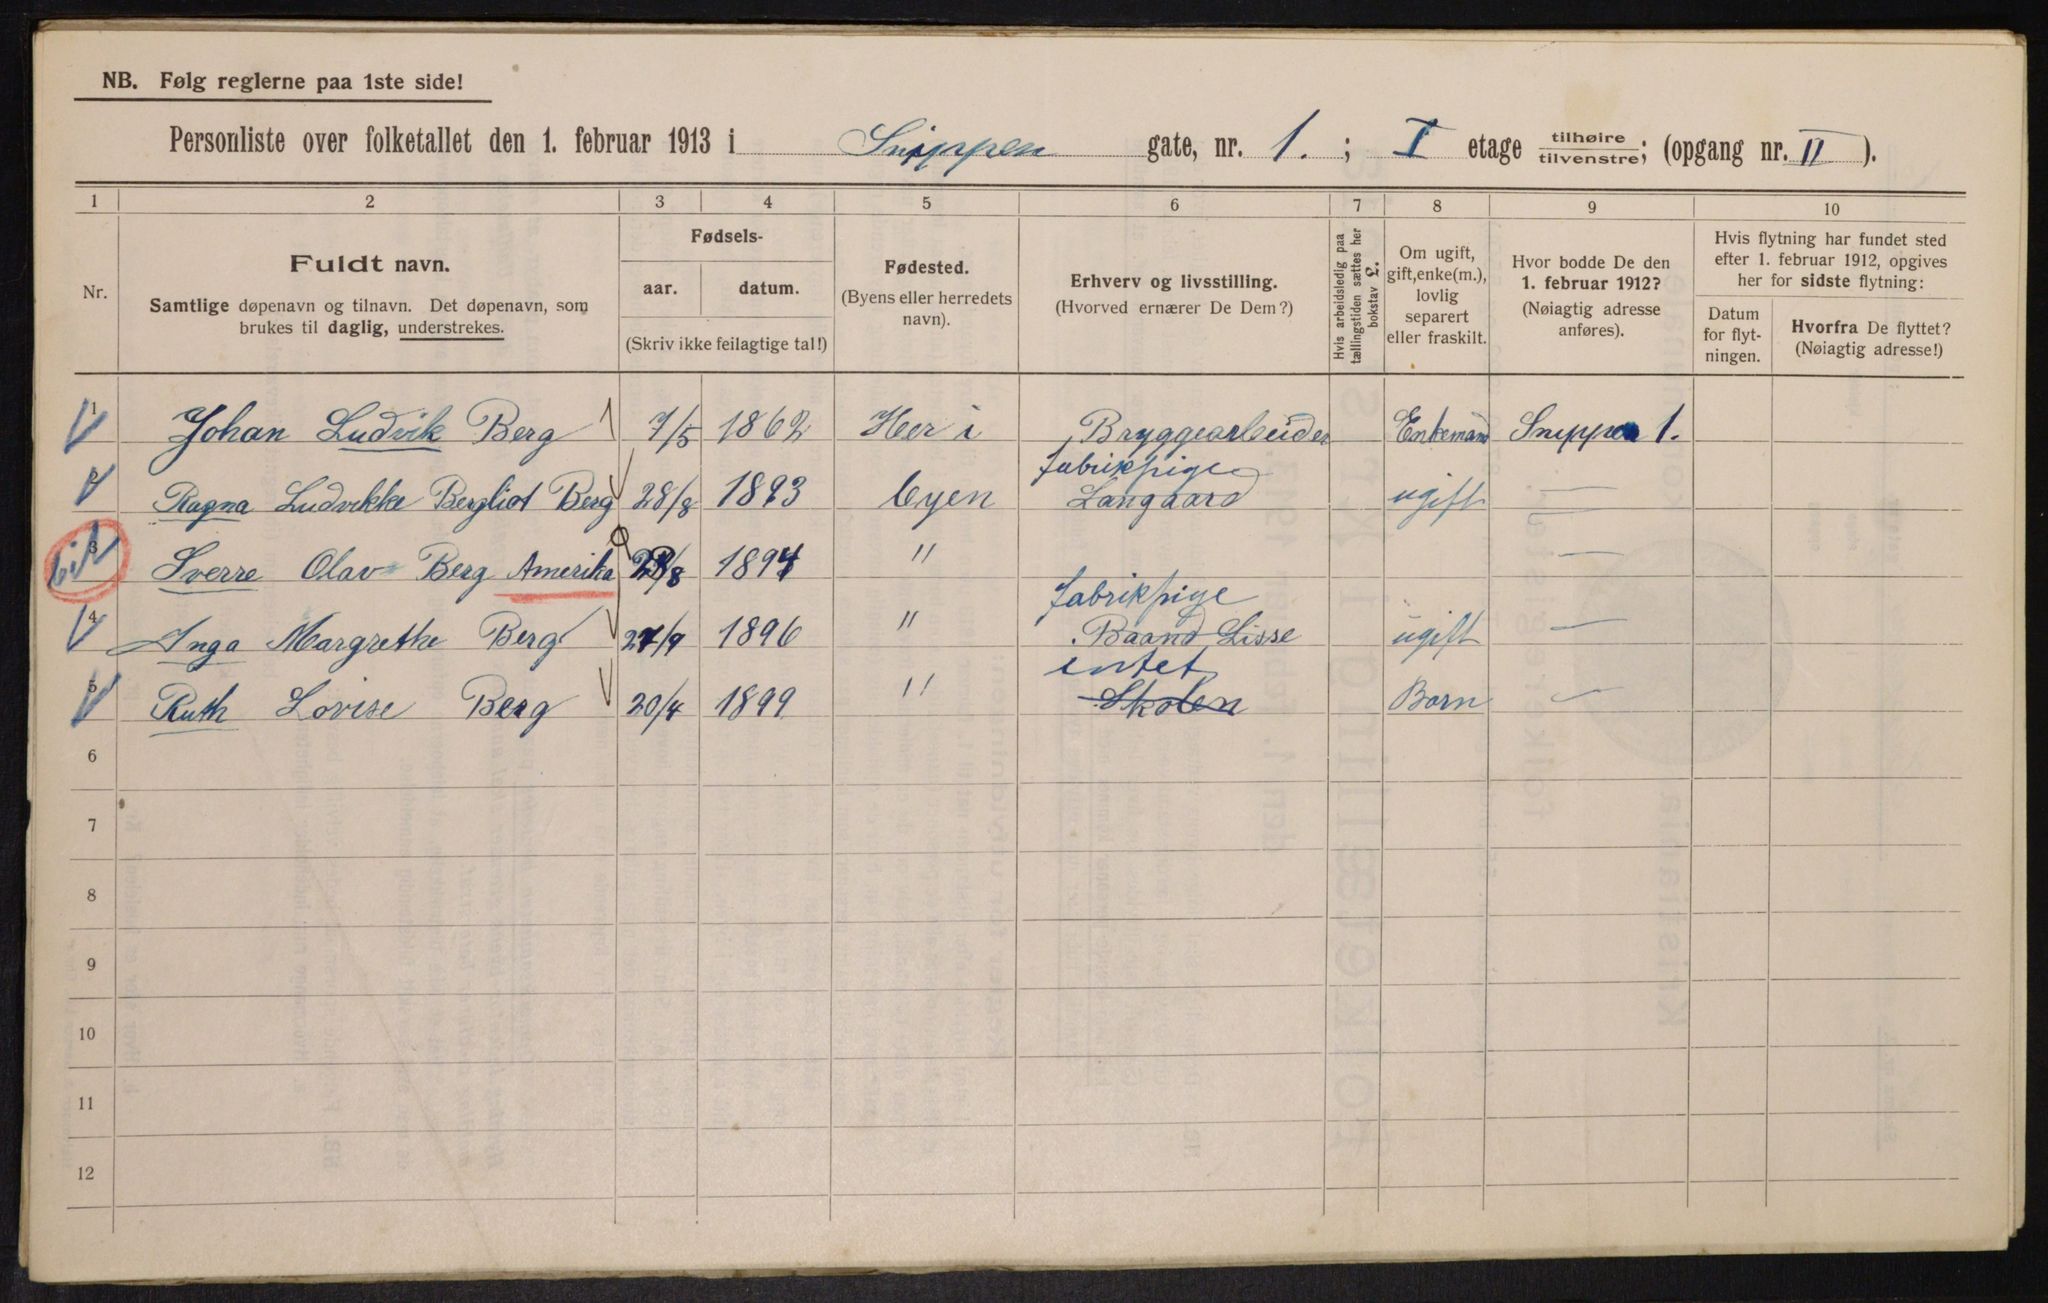 NB. Følg reglerne paa 1ste side!
Personliste over folketallet den 1. februar 1913 i Snippen gate, nr. 1. ; I etage tilhøire tilvenstre; (opgang nr. II ).
1 2 3 4 5 6 7 8 9 10
Nr.
Fuldt navn.
Samtlige døpenavn og tilnavn. Det døpenavn, som
brukes til daglig, understrekes.
Fødsels-
aar. datum.
(Skriv ikke feilagtige tal!)
Fødested.
(Byens eller herredets
navn).
Erhverv og livsstilling.
(Hvorved ernærer De Dem?)
Hvis arbeidsledig paa
tællingstiden sættes her
bokstav L.
Om ugift,
gift, enke(m.),
lovlig
separert
eller fraskilt.
Hvor bodde De den
1. februar 1912?
(Nøiagtig adresse
anføres).
Hvis flytning har fundet sted
efter 1. februar 1912, opgives
her for sidste flytning:
Datum
for flyt-
ningen.
Hvorfra De flyttet?
(Nøiagtig adresse!)
1 Johan Ludvik Berg 7/5 1862 Her i Bryggearbeider Enkemand Snippen 1.
fabrikpige
2 Ragna Ludvikke Bergliot Berg 28/8 1893 byen Langaard ugift —
3 Sverre Olav Berg Amerika /8 1894 " —
fabrikpige
4 Inga Margrethe Berg 27/9 1896 " Baand Lisse ugift —
intet
5 Ruth Lovise Berg 20/4 1899 " Skolen Barn —
6
7
8
9
10
11
12